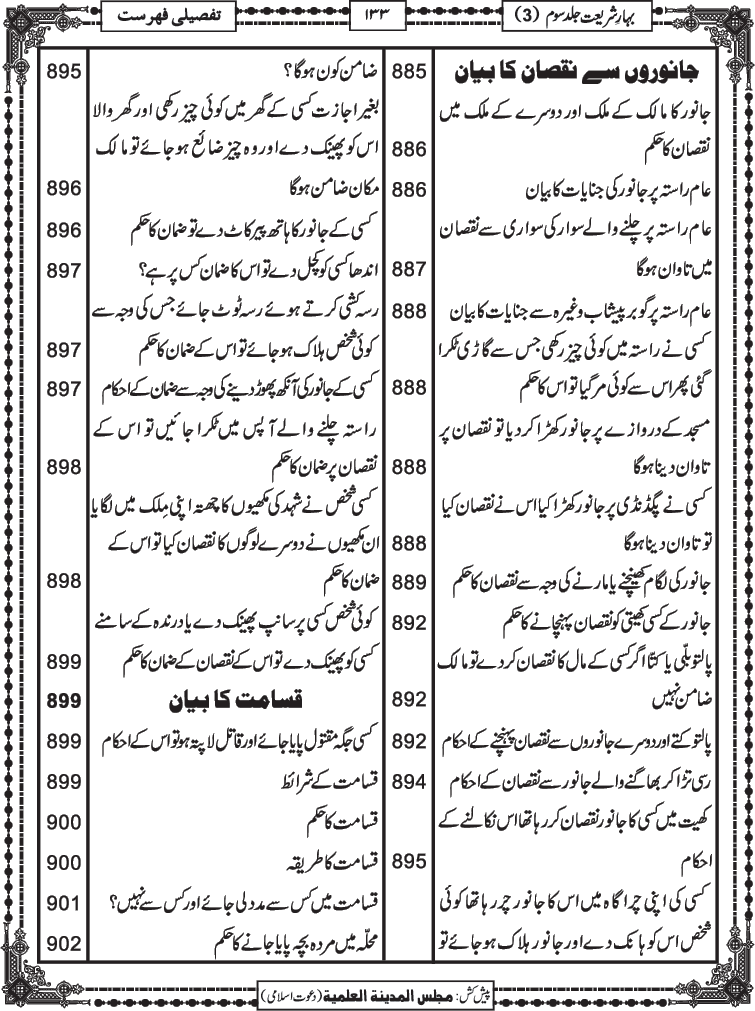 بہارِ شریعت جلد سوم (3)
۱۳۳
تفصیلی فہرست
جانوروں سے نقصان کا بیان 885
جانور کا مالک کے ملک اور دوسرے کے ملک میں
نقصان کا حکم 886
عام راستہ پر جانور کی جنایات کا بیان 886
عام راستہ پر چلنے والے سوار کی سواری سے نقصان
میں تاوان ہوگا 887
عام راستہ پر گوبر پیشاب وغیرہ سے جنایات کا بیان 888
کسی نے راستہ میں کوئی چیز رکھی جس سے گاڑی ٹکرا
گئی پھر اس سے کوئی مر گیا تو اس کا حکم 888
مسجد کے دروازے پر جانور کھڑا کر دیا تو نقصان پر
تاوان دینا ہوگا 888
کسی نے پگڈنڈی پر جانور کھڑا کیا اس نے نقصان کیا
تو تاوان دینا ہوگا 888
جانور کی لگام کھینچنے یا مارنے کی وجہ سے نقصان کا حکم 889
جانور کے کسی کھیتی کو نقصان پہنچانے کا حکم 892
پالتو بلّی یا کتّا اگر کسی کے مال کا نقصان کر دے تو مالک
ضامن نہیں 892
پالتو کتے اور دوسرے جانوروں سے نقصان پہنچنے کے احکام 892
رسی تڑا کر بھاگنے والے جانور سے نقصان کے احکام 894
کھیت میں کسی کا جانور نقصان کر رہا تھا اس نکالنے کے
احکام 895
کسی کی اپنی چراگاہ میں اس کا جانور چر رہا تھا کوئی
شخص اس کو ہانک دے اور جانور ہلاک ہو جائے تو
ضامن کون ہوگا؟ 895
بغیر اجازت کسی کے گھر میں کوئی چیز رکھی اور گھر والا
اس کو پھینک دے اور وہ چیز ضائع ہو جائے تو مالک
مکان ضامن ہوگا 896
کسی کے جانور کا ہاتھ پیر کاٹ دے تو ضمان کا حکم 896
اندھا کسی کو کچل دے تو اس کا ضمان کس پر ہے؟ 897
رسہ کشی کرتے ہوئے رسہ ٹوٹ جائے جس کی وجہ سے
کوئی شخص ہلاک ہو جائے تو اس کے ضمان کا حکم 897
کسی کے جانور کی آنکھ پھوڑ دینے کی وجہ سے ضمان کے احکام 897
راستہ چلنے والے آپس میں ٹکرا جائیں تو اس کے
نقصان پر ضمان کا حکم 898
کسی شخص نے شہد کی مکھیوں کا چھتہ اپنی مِلک میں لگایا
ان مکھیوں نے دوسرے لوگوں کا نقصان کیا تو اس کے
ضمان کا حکم 898
کوئی شخص کسی پر سانپ پھینک دے یا درندہ کے سامنے
کسی کو پھینک دے تو اس کے نقصان کے ضمان کا حکم 899
قسامت کا بیان 899
کسی جگہ مقتول پایا جائے اور قاتل لاپتہ ہو تو اس کے احکام 899
قسامت کے شرائط 899
قسامت کا حکم 900
قسامت کا طریقہ 900
قسامت میں کس سے مدد لی جائے اور کس سے نہیں؟ 901
محلّہ میں مردہ بچہ پایا جانے کا حکم 902
پیش کش: مجلس المدینۃ العلمیۃ (دعوتِ اسلامی)